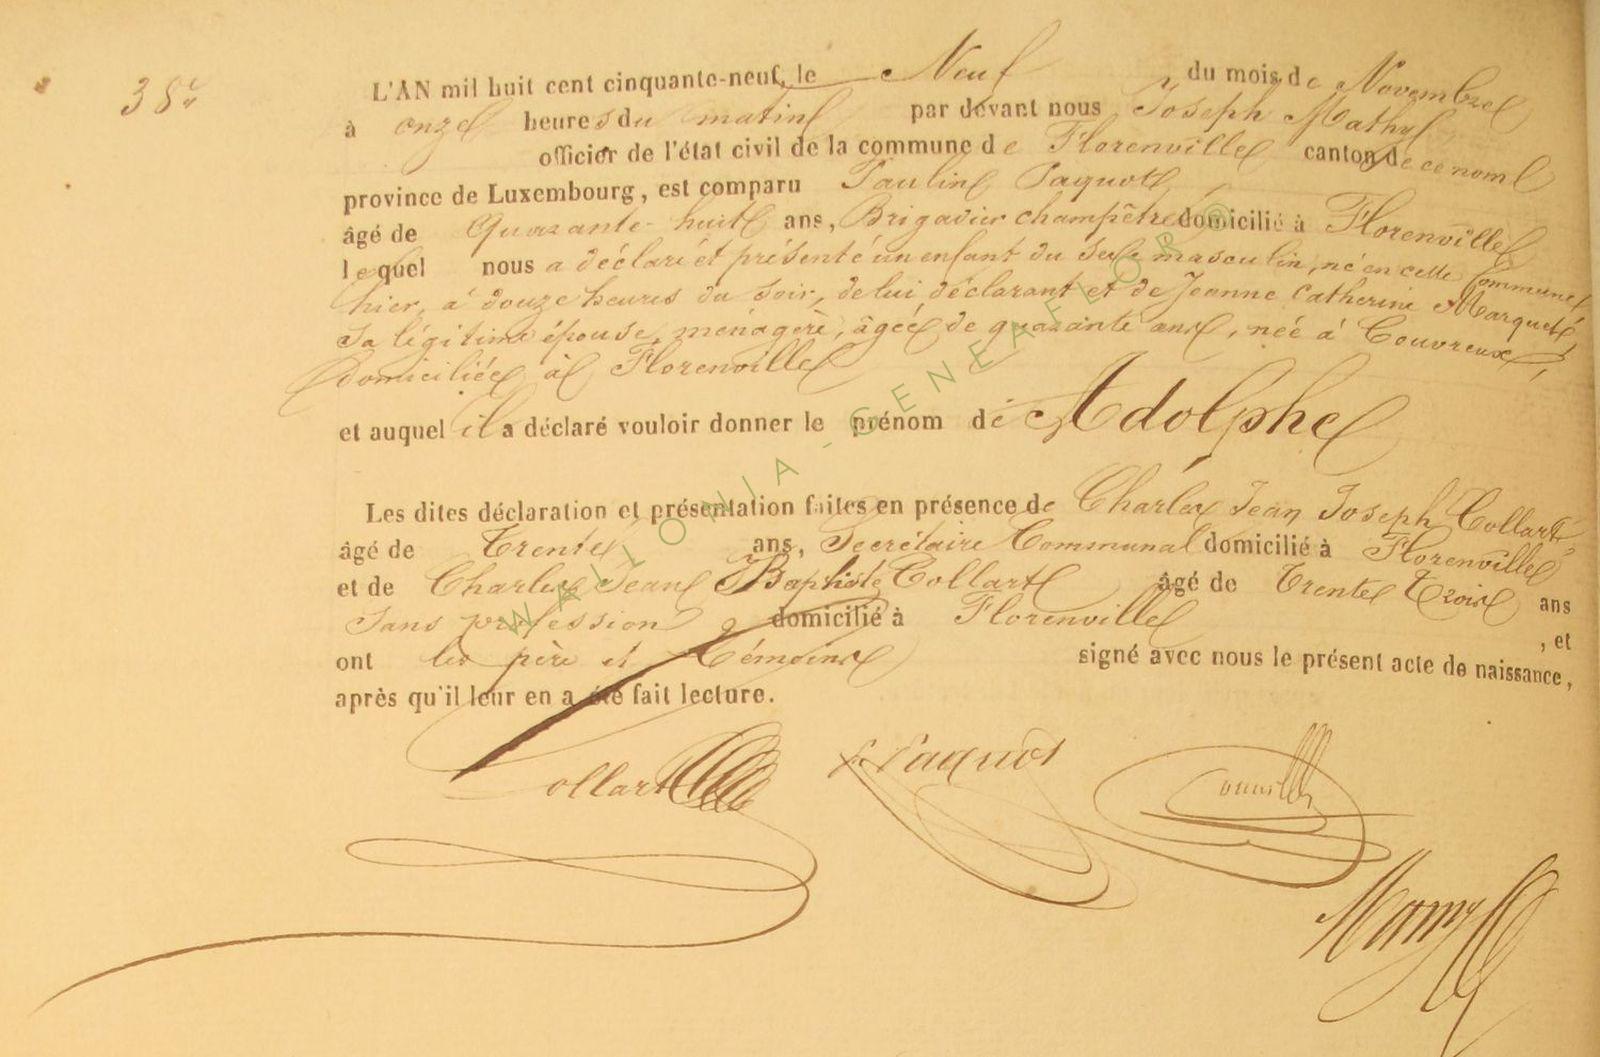 38e
L'AN mil huit cent cinquante-neuf, le Neuf du mois de Novembre
à onze heures du matin par devant nous Joseph Mathy
officier de l'état civil de la commune de Florenville canton de ce nom
province de Luxembourg, est comparu Paulin Paquot,
âgé de Quarante-huit ans, Brigadier champêtre domicilié à Florenville
lequel nous a déclaré et présenté un enfant du sexe masculin, né en cette Commune,
hier, à douze heures du soir, de lui déclarant et de Jeanne Catherine Marquet,
Sa légitime épouse, ménagère, âgée de quarante ans, née à Couvreux,
domiciliée à Florenville
et auquel il a déclaré vouloir donner le prénom de Adolphe
Les dites déclaration et présentation faites en présence de Charles Jean Joseph Collart,
âgé de Trente ans, Secrétaire Communal domicilié à Florenville
et de Charles Jean Baptiste Collart âgé de Trente Trois ans
Sans profession domicilié à Florenville , et
ont les père et témoins signé avec nous le présent acte de naissance,
après qu'il leur en a été fait lecture.
Collart Paquot
WALLONIA-GENEAFLOR©